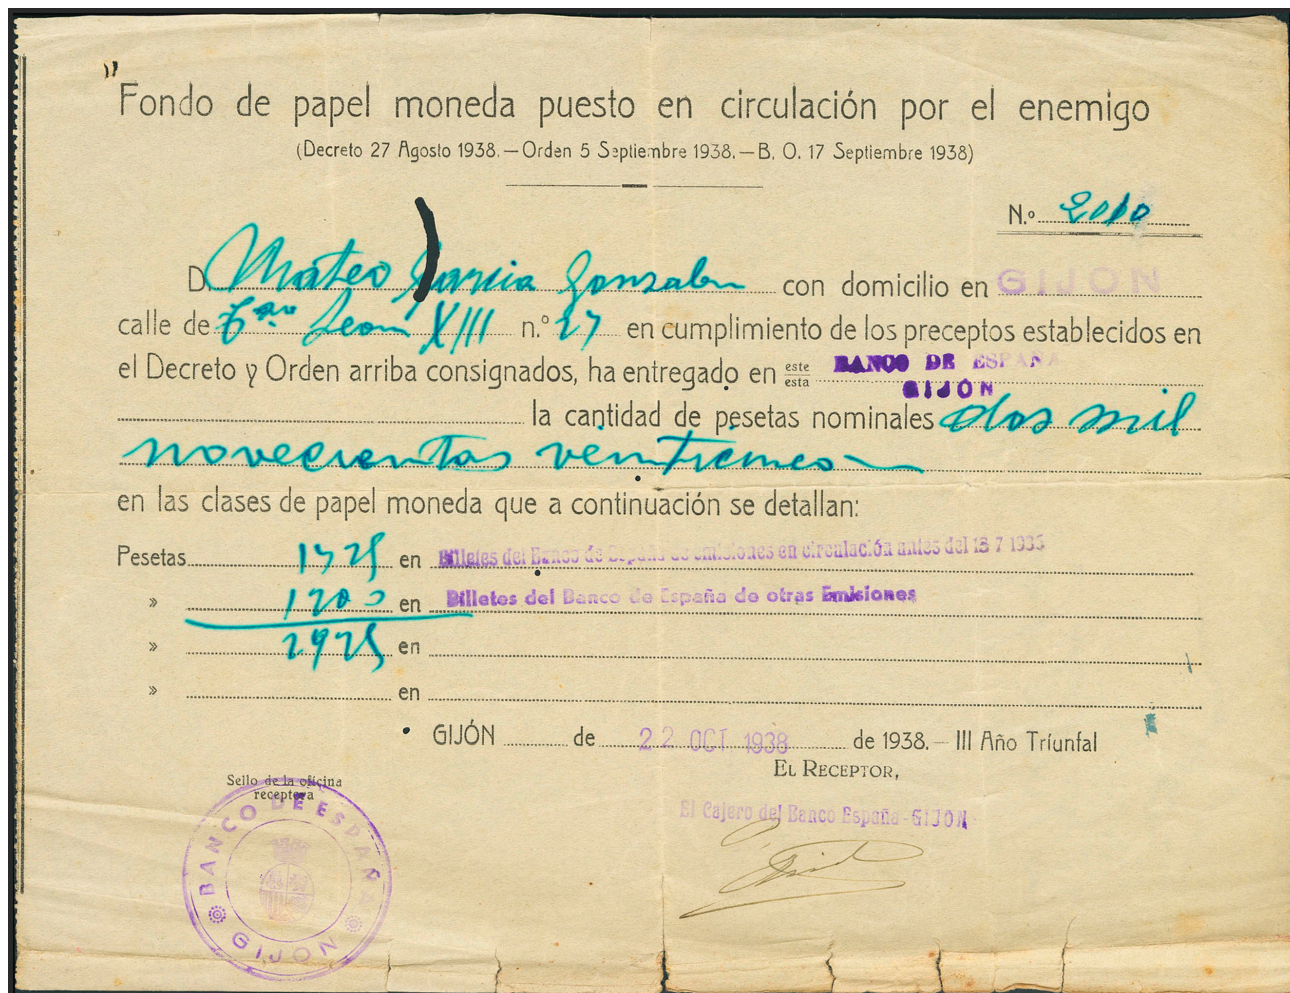 Fondo de papel moneda puesto en circulación por el enemigo
(Decreto 27 Agosto 1938.—Orden 5 Septiembre 1938.—B. O. 17 Septiembre 1938)
N.º 2010
D. Mateo Garcia Gonzalez con domicilio en GIJON
calle de León XIII n.º 27 en cumplimiento de los preceptos establecidos en
el Decreto y Orden arriba consignados, ha entregado en este esta BANCO DE ESPAÑA
GIJÓN
la cantidad de pesetas nominales dos mil
novecientas veinticinco
en las clases de papel moneda que a continuación se detallan:
Pesetas 1725 en Billetes del Banco de España de emisiones en circulación antes del 18 7 1936
» 1200 en Billetes del Banco de España de otras Emisiones
» 2925 en
» en
GIJÓN de 22 OCT 1938 de 1938.— III Año Triunfal
EL RECEPTOR,
Sello de la oficina
receptora
El Cajero del Banco España-GIJON
BANCO DE ESPAÑA
GIJON